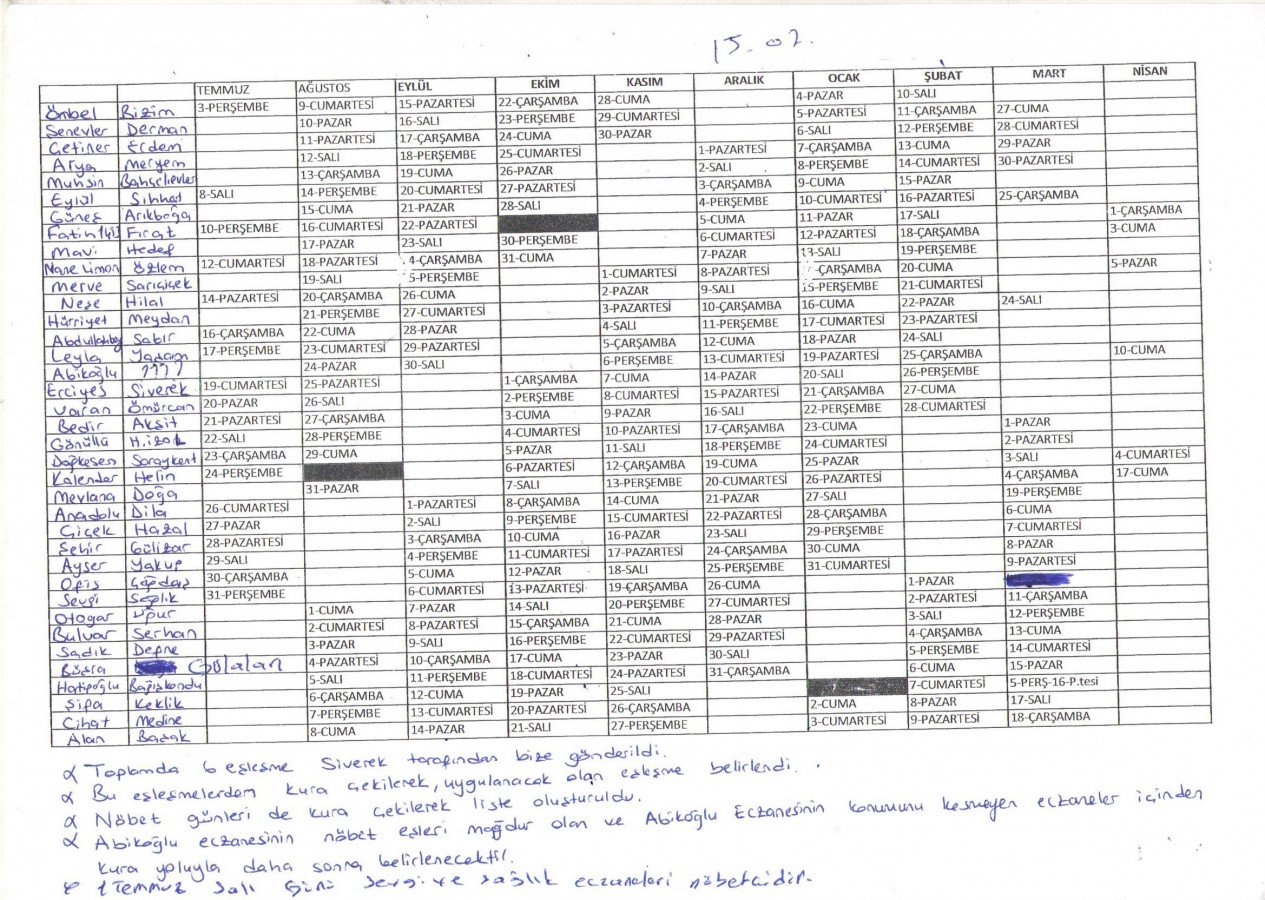 15.02.
TEMMUZ AĞUSTOS EYLÜL EKİM KASIM ARALIK OCAK ŞUBAT MART NİSAN
Önbel Bizim 3-PERŞEMBE 9-CUMARTESİ 15-PAZARTESİ 22-ÇARŞAMBA 28-CUMA 4-PAZAR 10-SALI
Senevler Derman 10-PAZAR 16-SALI 23-PERŞEMBE 29-CUMARTESİ 5-PAZARTESİ 11-ÇARŞAMBA 27-CUMA
Çetiner Erdem 11-PAZARTESİ 17-ÇARŞAMBA 24-CUMA 30-PAZAR 6-SALI 12-PERŞEMBE 28-CUMARTESİ
Arya Meryem 12-SALI 18-PERŞEMBE 25-CUMARTESİ 1-PAZARTESİ 7-ÇARŞAMBA 13-CUMA 29-PAZAR
Muhsin Bahçelievler 13-ÇARŞAMBA 19-CUMA 26-PAZAR 2-SALI 8-PERŞEMBE 14-CUMARTESİ 30-PAZARTESİ
Eylül Sıhhat 8-SALI 14-PERŞEMBE 20-CUMARTESİ 27-PAZARTESİ 3-ÇARŞAMBA 9-CUMA 15-PAZAR
Güneş Arıkboğa 15-CUMA 21-PAZAR 28-SALI 4-PERŞEMBE 10-CUMARTESİ 16-PAZARTESİ 25-ÇARŞAMBA
Fatin Fırat 10-PERŞEMBE 16-CUMARTESİ 22-PAZARTESİ 5-CUMA 11-PAZAR 17-SALI 1-ÇARŞAMBA
Mavi Hedef 17-PAZAR 23-SALI 30-PERŞEMBE 6-CUMARTESİ 12-PAZARTESİ 18-ÇARŞAMBA 3-CUMA
Nane Limon Özlem 12-CUMARTESİ 18-PAZARTESİ 4-ÇARŞAMBA 31-CUMA 7-PAZAR 13-SALI 19-PERŞEMBE
Merve Sarıçiçek 19-SALI 5-PERŞEMBE 1-CUMARTESİ 8-PAZARTESİ -ÇARŞAMBA 20-CUMA 5-PAZAR
Neşe Hilal 14-PAZARTESİ 20-ÇARŞAMBA 26-CUMA 2-PAZAR 9-SALI 15-PERŞEMBE 21-CUMARTESİ
Hürriyet Meydan 21-PERŞEMBE 27-CUMARTESİ 3-PAZARTESİ 10-ÇARŞAMBA 16-CUMA 22-PAZAR 24-SALI
Abdullahbey Sabır 16-ÇARŞAMBA 22-CUMA 28-PAZAR 4-SALI 11-PERŞEMBE 17-CUMARTESİ 23-PAZARTESİ
Leyla Yaşam 17-PERŞEMBE 23-CUMARTESİ 29-PAZARTESİ 5-ÇARŞAMBA 12-CUMA 18-PAZAR 24-SALI
Abikoğlu ???? 24-PAZAR 30-SALI 6-PERŞEMBE 13-CUMARTESİ 19-PAZARTESİ 25-ÇARŞAMBA 10-CUMA
Erciyes Siverek 19-CUMARTESİ 25-PAZARTESİ 1-ÇARŞAMBA 7-CUMA 14-PAZAR 20-SALI 26-PERŞEMBE
Varan Ömürcan 20-PAZAR 26-SALI 2-PERŞEMBE 8-CUMARTESİ 15-PAZARTESİ 21-ÇARŞAMBA 27-CUMA
Bedir Akşit 21-PAZARTESİ 27-ÇARŞAMBA 3-CUMA 9-PAZAR 16-SALI 22-PERŞEMBE 28-CUMARTESİ
Gönüllü H.izol 22-SALI 28-PERŞEMBE 4-CUMARTESİ 10-PAZARTESİ 17-ÇARŞAMBA 23-CUMA 1-PAZAR
Dağkesen Saraykent 23-ÇARŞAMBA 29-CUMA 5-PAZAR 11-SALI 18-PERŞEMBE 24-CUMARTESİ 2-PAZARTESİ
Kalender Helin 24-PERŞEMBE 6-PAZARTESİ 12-ÇARŞAMBA 19-CUMA 25-PAZAR 3-SALI 4-CUMARTESİ
Mevlana Doğa 31-PAZAR 7-SALI 13-PERŞEMBE 20-CUMARTESİ 26-PAZARTESİ 4-ÇARŞAMBA 17-CUMA
Anadolu Dila 26-CUMARTESİ 1-PAZARTESİ 8-ÇARŞAMBA 14-CUMA 21-PAZAR 27-SALI 19-PERŞEMBE
Çiçek Hazal 27-PAZAR 2-SALI 9-PERŞEMBE 15-CUMARTESİ 22-PAZARTESİ 28-ÇARŞAMBA 6-CUMA
Şehir Gülizar 28-PAZARTESİ 3-ÇARŞAMBA 10-CUMA 16-PAZAR 23-SALI 29-PERŞEMBE 7-CUMARTESİ
Ayser Yakup 29-SALI 4-PERŞEMBE 11-CUMARTESİ 17-PAZARTESİ 24-ÇARŞAMBA 30-CUMA 8-PAZAR
Ofis Çağdaş 30-ÇARŞAMBA 5-CUMA 12-PAZAR 18-SALI 25-PERŞEMBE 31-CUMARTESİ 9-PAZARTESİ
Sevgi Sağlık 31-PERŞEMBE 6-CUMARTESİ 13-PAZARTESİ 19-ÇARŞAMBA 26-CUMA 1-PAZAR
Otogar Uğur 1-CUMA 7-PAZAR 14-SALI 20-PERŞEMBE 27-CUMARTESİ 2-PAZARTESİ 11-ÇARŞAMBA
Bulvar Serhan 2-CUMARTESİ 8-PAZARTESİ 15-ÇARŞAMBA 21-CUMA 28-PAZAR 3-SALI 12-PERŞEMBE
Sadık Defne 3-PAZAR 9-SALI 16-PERŞEMBE 22-CUMARTESİ 29-PAZARTESİ 4-ÇARŞAMBA 13-CUMA
Büşra Gülalan 4-PAZARTESİ 10-ÇARŞAMBA 17-CUMA 23-PAZAR 30-SALI 5-PERŞEMBE 14-CUMARTESİ
Hatipoğlu Bağışkondu 5-SALI 11-PERŞEMBE 18-CUMARTESİ 24-PAZARTESİ 31-ÇARŞAMBA 6-CUMA 15-PAZAR
Şifa Keklik 6-ÇARŞAMBA 12-CUMA 19-PAZAR 25-SALI 7-CUMARTESİ 5-PERŞ-16-P.tesi
Cihat Medine 7-PERŞEMBE 13-CUMARTESİ 20-PAZARTESİ 26-ÇARŞAMBA 2-CUMA 8-PAZAR 17-SALI
Alan Başak 8-CUMA 14-PAZAR 21-SALI 27-PERŞEMBE 3-CUMARTESİ 9-PAZARTESİ 18-ÇARŞAMBA
Toplamda 6 eşleşme Siverek tarafından bize gönderildi.
Bu eşleşmelerden kura çekilerek, uygulanacak olan eşleşme belirlendi.
Nöbet günleri de kura çekilerek liste oluşturuldu.
Abikoğlu eczanesinin nöbet eşleri mağdur olan ve Abikoğlu Eczanesinin konumunu kesmeyen eczaneler içinden
kura yoluyla daha sonra belirlenecektir.
1 Temmuz Salı Günü Sevgi ve sağlık eczaneleri nöbetcidir.